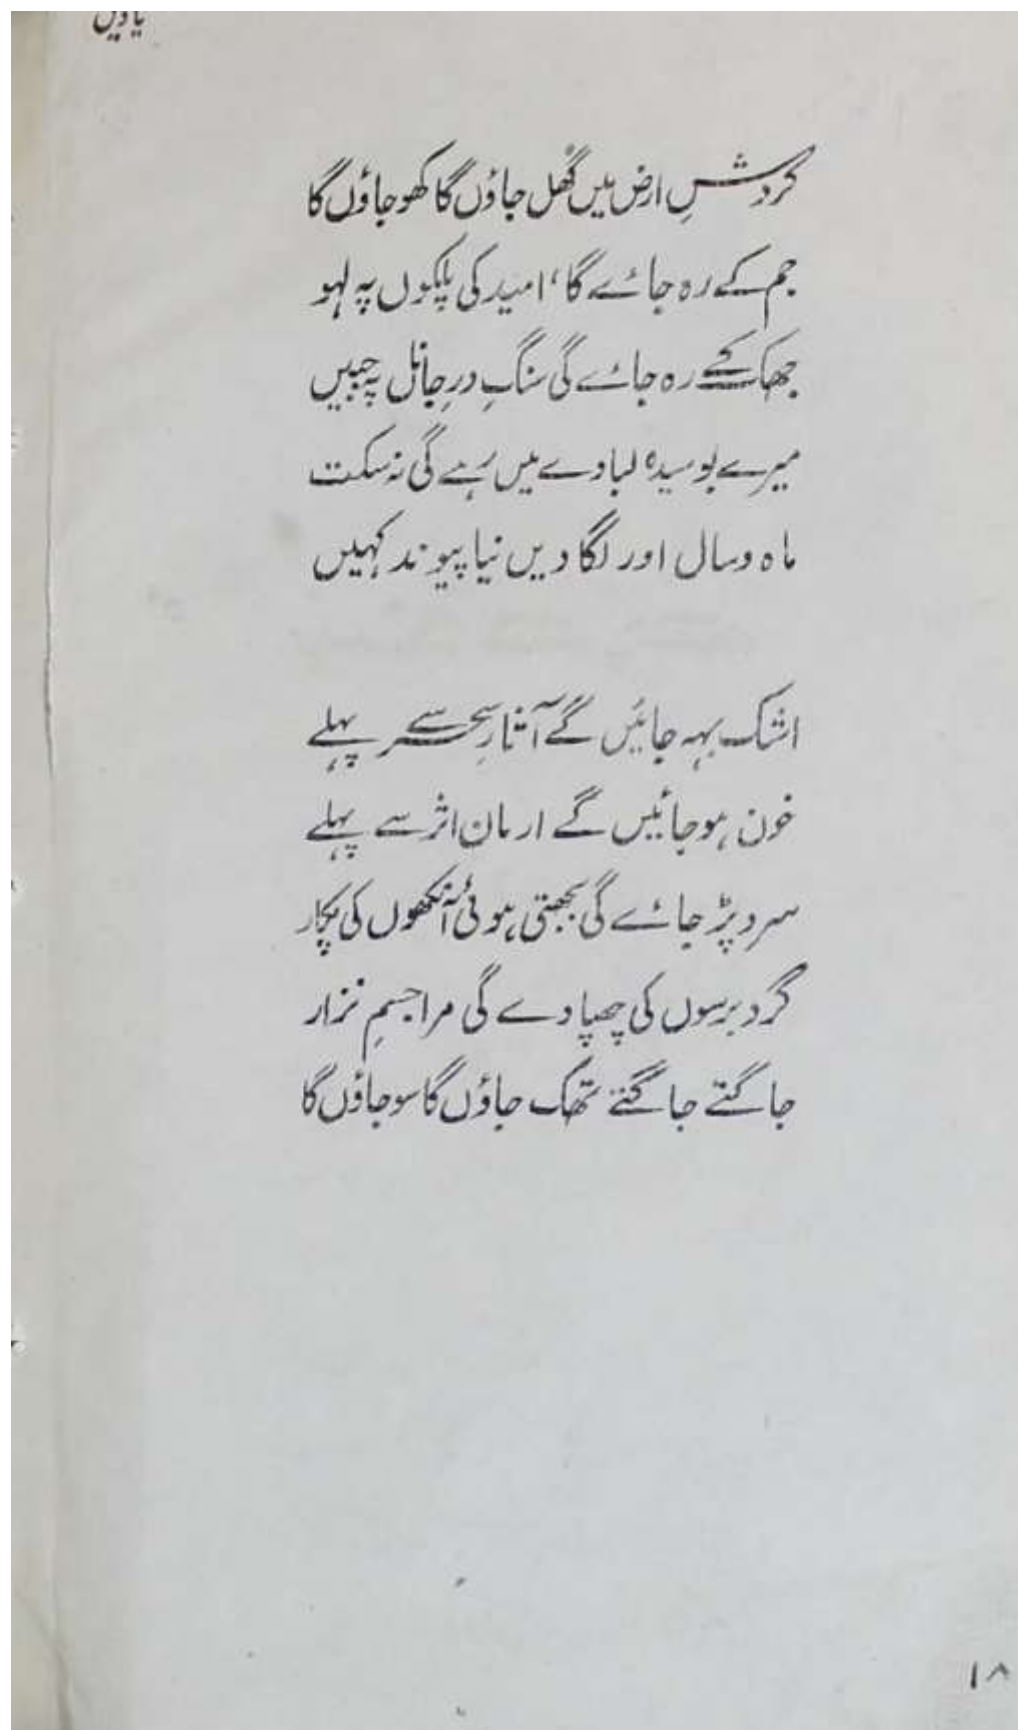 یادیں
گردشِ ارض میں گھل جاؤں گا کھو جاؤں گا
جم کے رہ جائے گا، امید کی پلکوں پہ لہو
جھک کے رہ جائے گی سنگِ درِ جاناں پہ جبیں
میرے بوسیدہ لبادے میں رہے گی نہ سکت
ماہ و سال اور لگا دیں نیا پیوند کہیں
اشک بہہ جائیں گے آثارِ سحر سے پہلے
خون ہو جائیں گے ارمان اثر سے پہلے
سرد پڑ جائے گی بجھتی ہوئی آنکھوں کی پکار
گرد برسوں کی چھپا دے گی مرا جسمِ نزار
جاگتے جاگتے تھک جاؤں گا سو جاؤں گا
۱۸